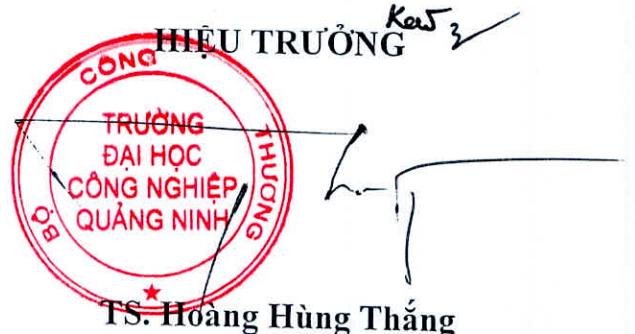 HIỆU TRƯỞNG
BỘ CÔNG THƯƠNG
TRƯỜNG
ĐẠI HỌC
CÔNG NGHIỆP
QUẢNG NINH
TS. Hoàng Hùng Thắng